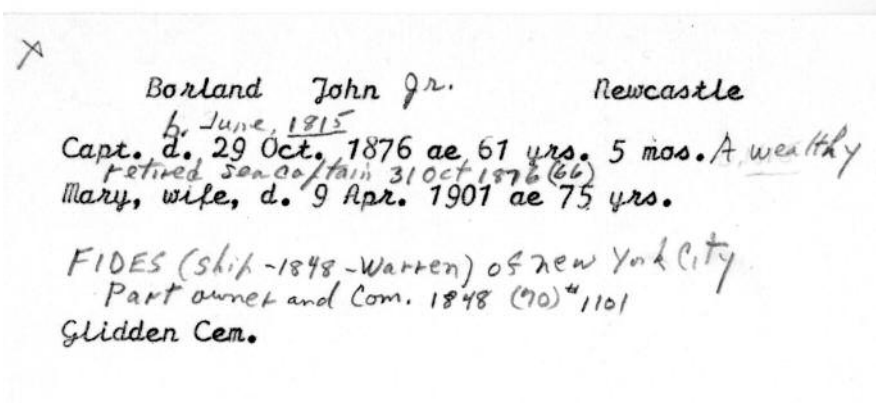 X
Borland John Jr. Newcastle
b. June, 1815
Capt. d. 29 Oct. 1876 ae 61 yrs. 5 mos. A wealthy
retired sea captain 31 Oct 1876 (66)
Mary, wife, d. 9 Apr. 1901 ae 75 yrs.
FIDES (ship-1848-Warren) of New York City
Part owner and Com. 1848 (70) #1101
Glidden Cem.